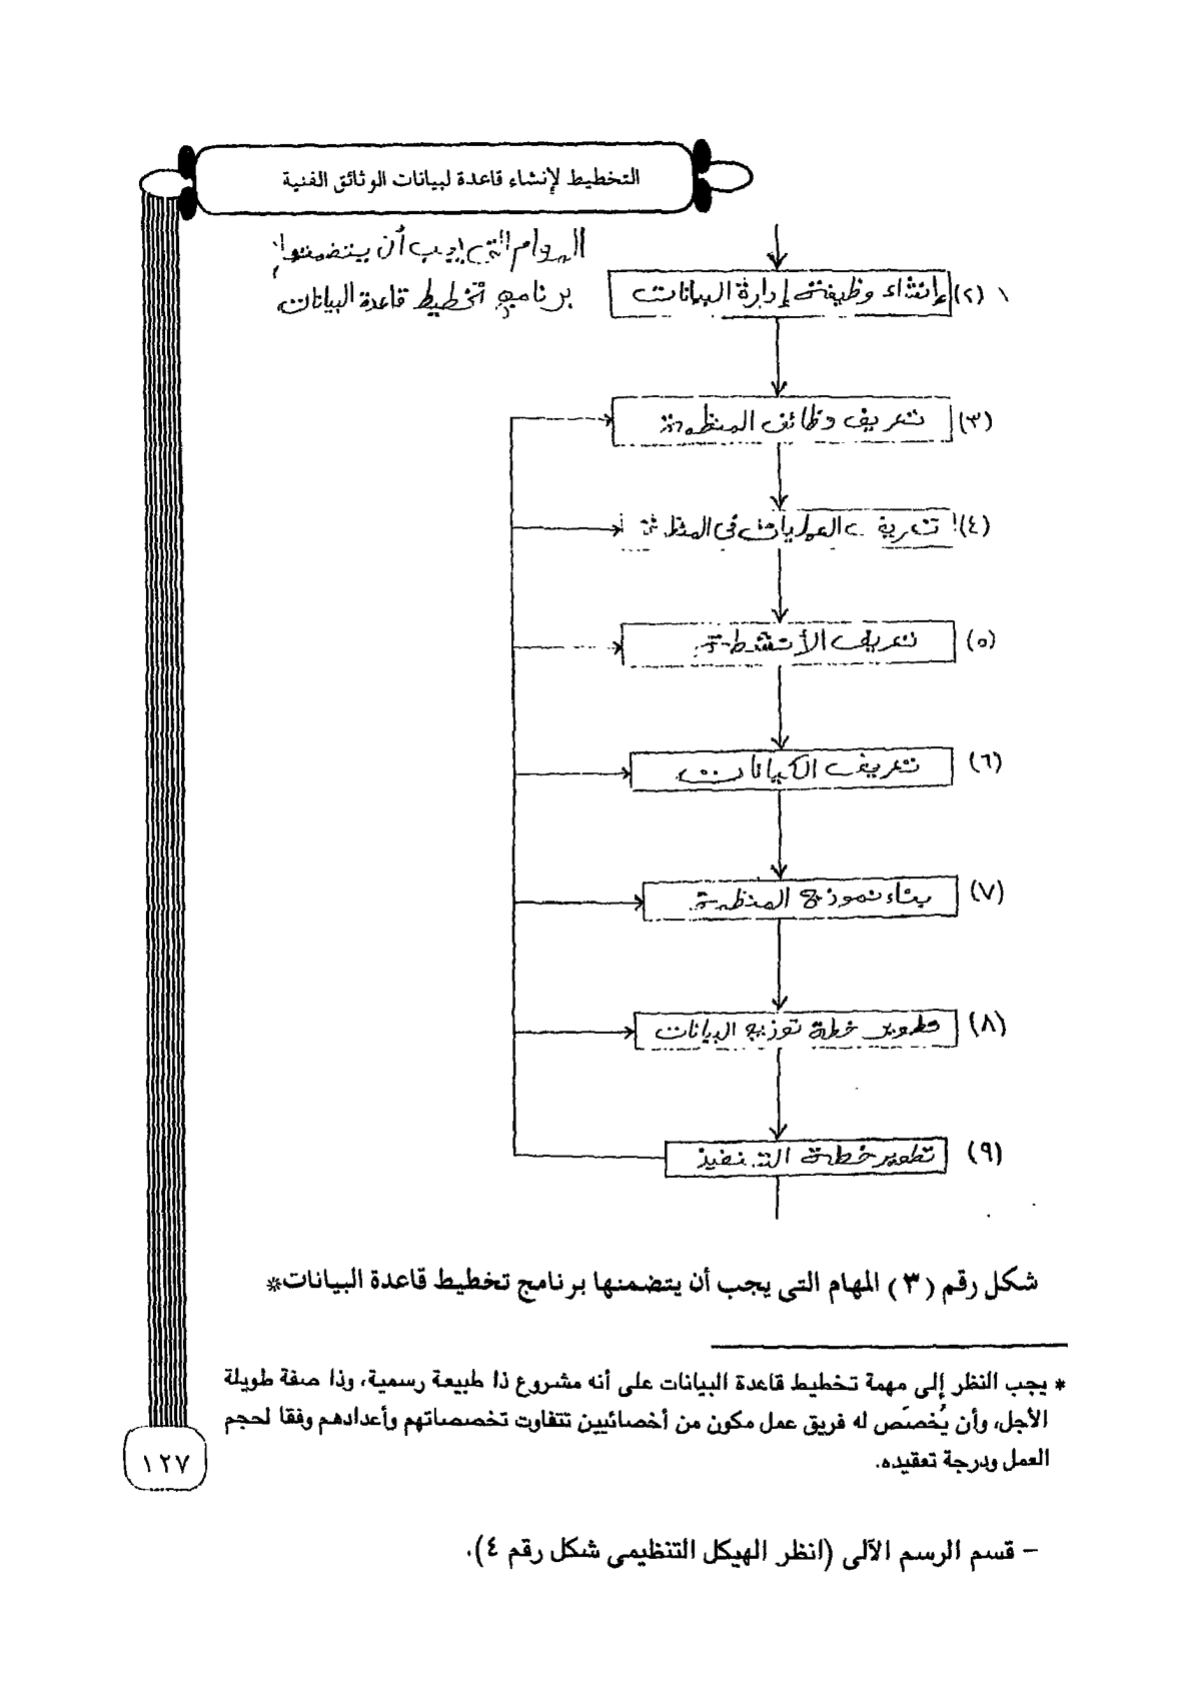 التخطيط لإنشاء قاعدة لبيانات الوثائق الفنية
المهام التي يجب أن يتضمنها
برنامج تخطيط قاعدة البيانات
(٢) إنشاء وظيفة إدارة البيانات
(٣) تعريف وظائف المنظمة
(٤) تعريف العمليات في المنظمة
(٥) تعريف الأنشطة
(٦) تعريف الكيانات
(٧) بناء نموذج المنظمة
(٨) تطوير خطة توزيع البيانات
(٩) تطوير خطة التنفيذ
شكل رقم (٣) المهام التى يجب أن يتضمنها برنامج تخطيط قاعدة البيانات*
* يجب النظر إلى مهمة تخطيط قاعدة البيانات على أنه مشروع ذا طبيعة رسمية، وذا صفة طويلة
الأجل، وأن يُخصَّص له فريق عمل مكون من أخصائيين تتفاوت تخصصاتهم وأعدادهم وفقا لحجم
العمل ودرجة تعقيده.
١٢٧
– قسم الرسم الآلى (انظر الهيكل التنظيمى شكل رقم ٤).